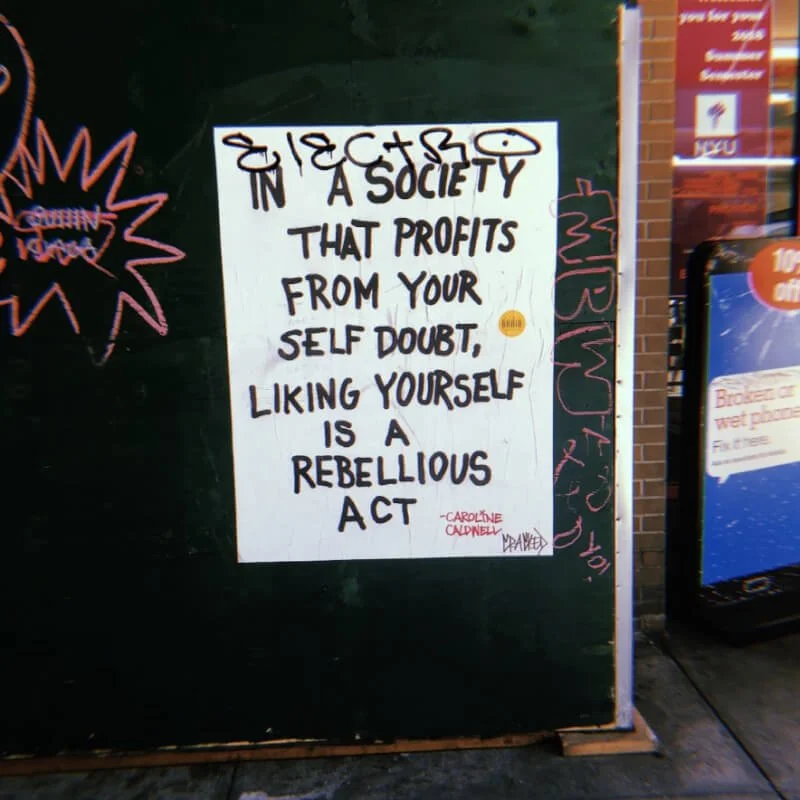 ELECTRO
IN A SOCIETY
THAT PROFITS
FROM YOUR
SELF DOUBT,
LIKING YOURSELF
IS A
REBELLIOUS
ACT
-CAROLINE
CALDWELL
you for your
Summer
Semester
NYU
10%
off
Broken or
wet phone
Fix it here.